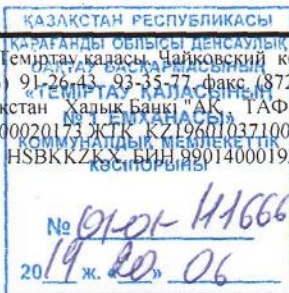 ҚАЗАҚСТАН РЕСПУБЛИКАСЫ
ҚАРАҒАНДЫ ОБЛЫСЫ ДЕНСАУЛЫҚ
Теміртау қаласы, Чайковский
САҚТАУ БАСҚАРМАСЫНЫҢ
91-26-43, 93-35-77, факс (872
«ТЕМІРТАУ ҚАЛАСЫНЫҢ
Халық Банкі "АҚ, ТАФ
№ 1 ЕМХАНАСЫ»
00020173 ЖТК KZ19601037100
КОММУНАЛДЫҚ МЕМЛЕКЕТТІК
HSBKKZKX БИН 9901400019
КӘСІПОРЫНЫ
№ 01-01- 111666
2019 ж. «20» 06